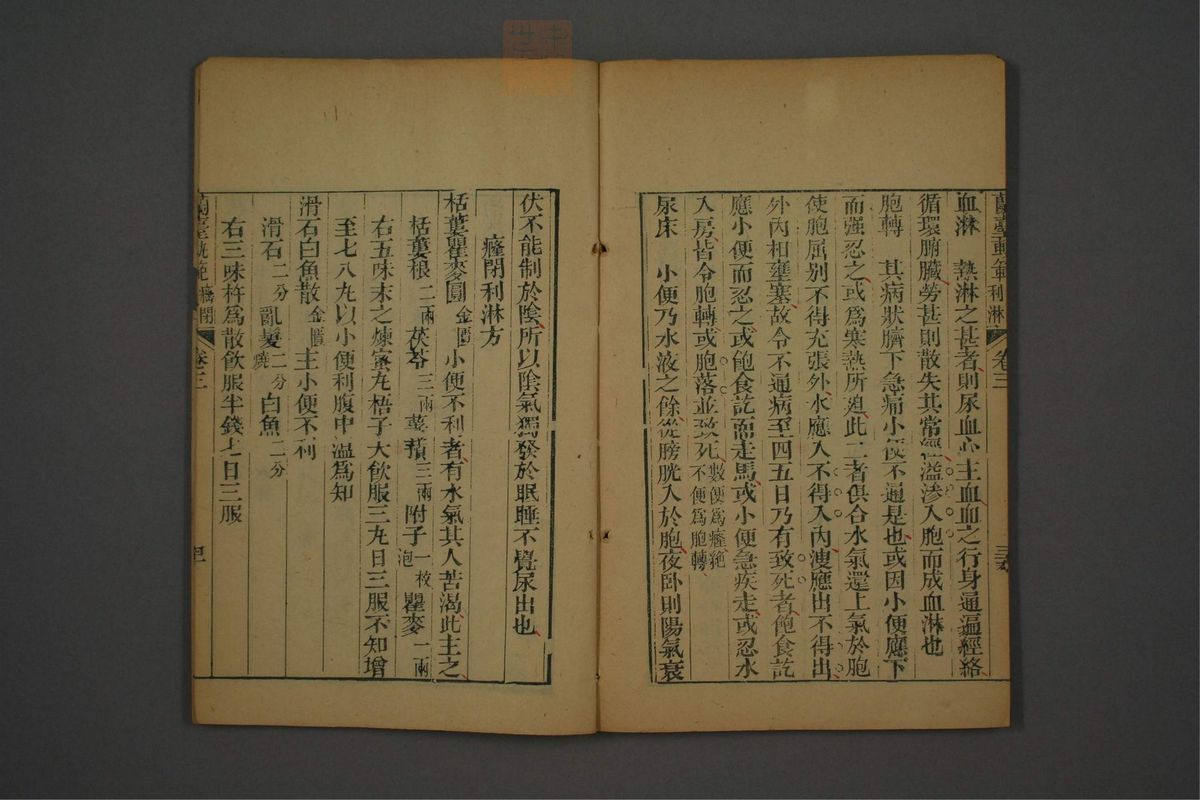 蘭臺軌範 利淋 卷三
血淋　熱淋之甚者則尿血心主血血之行身通遍經絡
循環腑臟勞甚則散失其常經溢渗入胞而成血淋也
胞轉　其病狀臍下急痛小便不通是也或因小便應下
而强忍之或爲寒熱所迫此二者俱合水氣還上氣於胞
使胞屈别不得充張外水應入不得入内溲應出不得出
外内相壅塞故令不通病至四五日乃有致死者飽食訖
應小便而忍之或飽食訖而走馬或小便急疾走或忍水
入房皆令胞轉或胞落並致死數便爲癃絶不便爲胞轉
尿床　小便乃水液之餘從膀胱入於胞夜卧則陽氣衰
伏不能制於陰所以陰氣獨發於眠睡不覺尿出也
癃閉利淋方
栝蔞瞿麥圓金匱　小便不利者有水氣其人苦渴此主之
栝蔞根二兩　茯苓三兩　薯蕷三兩　附子一枚泡　瞿麥一兩
右五味末之煉蜜丸梧子大飲服三丸日三服不知增
至七八丸以小便利腹中溫爲知
滑石白魚散金匱　主小便不利
滑石二分　亂髮二分燒　白魚二分
右三味杵爲散飲服半錢匕日三服
蘭臺軌範 癃閉 卷三